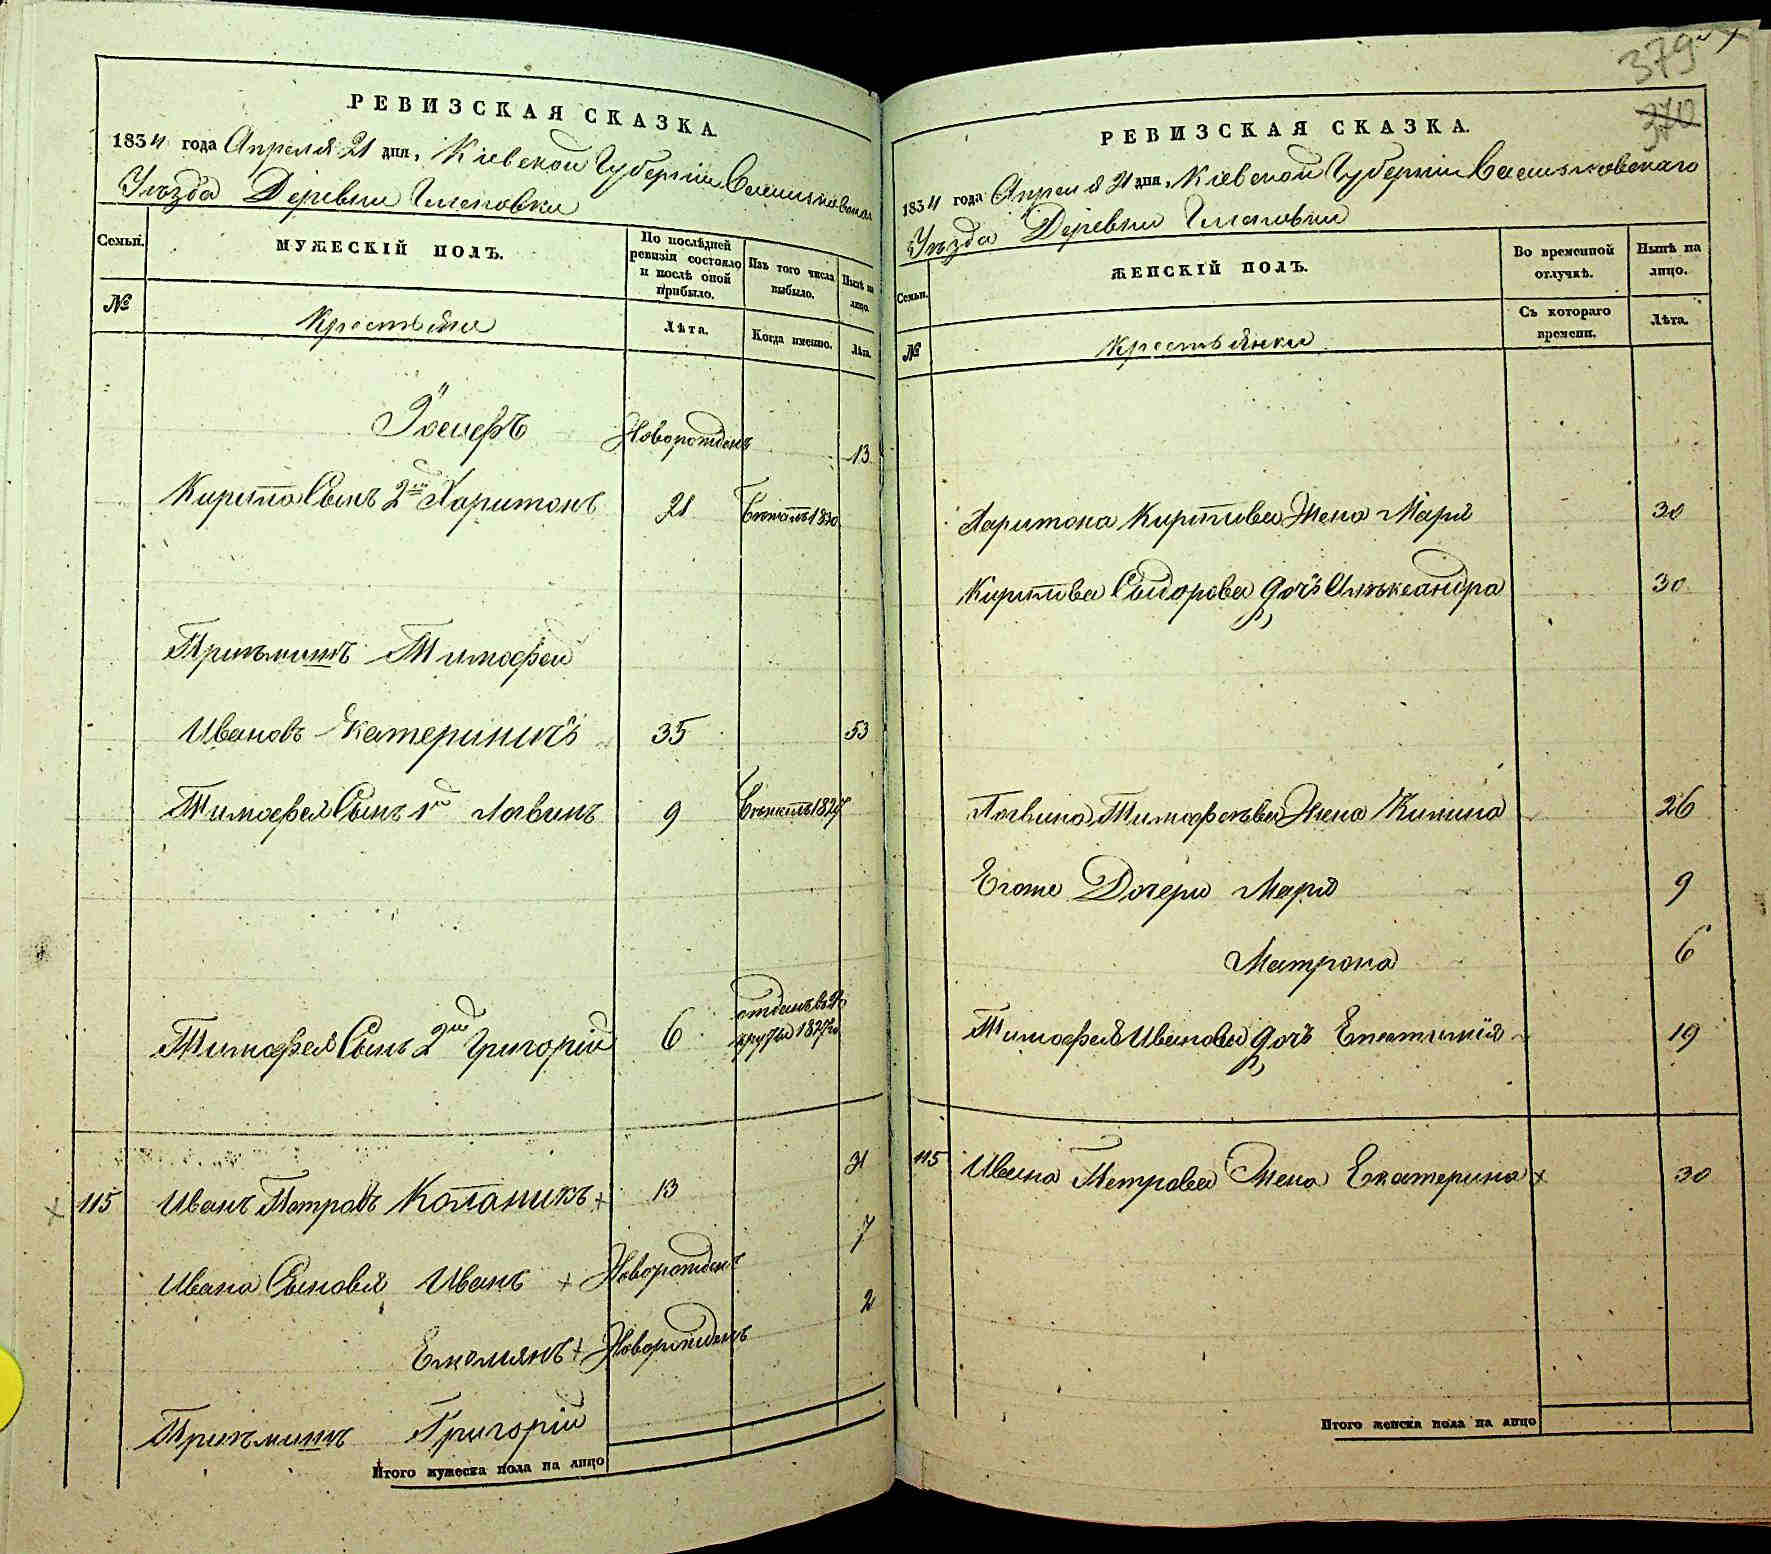 РЕВИЗСКАЯ СКАЗКА.
1834 года Апреля 21 дня, Кіевской Губерніи Васильковскаго
Уѣзда Деревни
Семьи.
МУЖЕСКІЙ ПОЛЪ.
По послѣдней ревизіи состояло и послѣ оной прибыло.
Изъ того числа выбыло.
Нынѣ на лицо.
№
Крестьяне
Лѣта.
Когда именно.
Лѣта.
Іосифъ Новорожденъ 13
Кирила Сынъ 2й Харитонъ 21 Бѣжалъ 1830
Приймитъ Тимофей
Ивановъ 35 53
Тимофея Сынъ 1й Логвинъ 9 Бѣжалъ 1827
Тимофея Сынъ 2й Григорій 6 отданъ въ рекруты 1827го
115 Иванъ Петровъ + 13 31
Ивана Сыновья Иванъ + Новорожденъ 7
Емельянъ + Новорожденъ 2
Григорій
Итого мужеска пола на лицо
379
370
РЕВИЗСКАЯ СКАЗКА.
1834 года Апреля 21 дня, Кіевской Губерніи Васильковскаго
Уѣзда Деревни
Семьи.
ЖЕНСКІЙ ПОЛЪ.
Во временной отлучкѣ.
Нынѣ на лицо.
№
Крестьянки
Съ котораго времени.
Лѣта.
Харитона Кирилова Жена Марія 30
Кирилова Сидорова дочь Александра 30
Логвина Тимофеева Жена 26
Егоже Дочери Марія 9
Матрона 6
Тимофея Иванова дочь 19
115 Ивана Петрова Жена Екатерина + 30
Итого женска пола на лицо